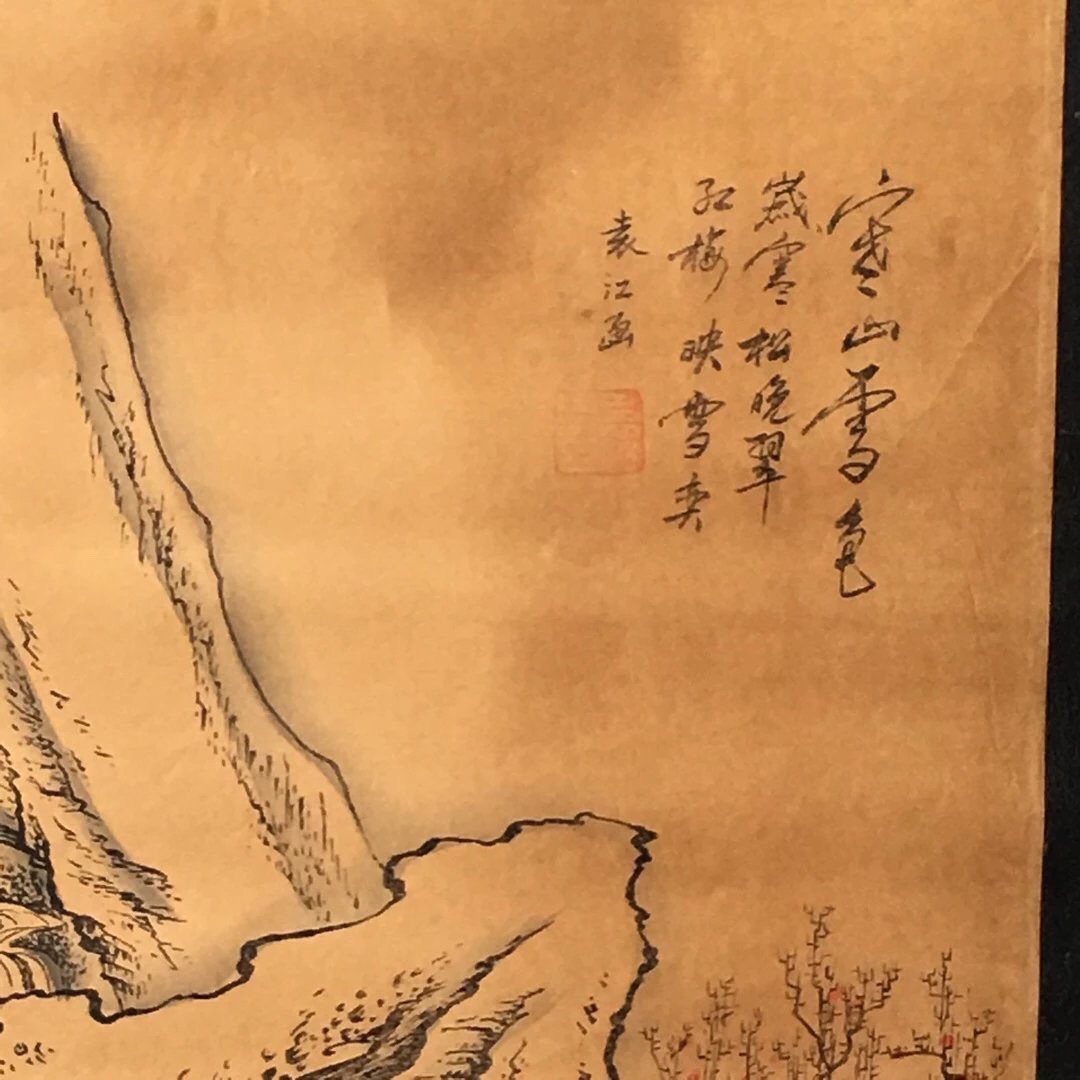 寒山雪色
歲寒松晚翠
紅梅映雪奕
袁江画